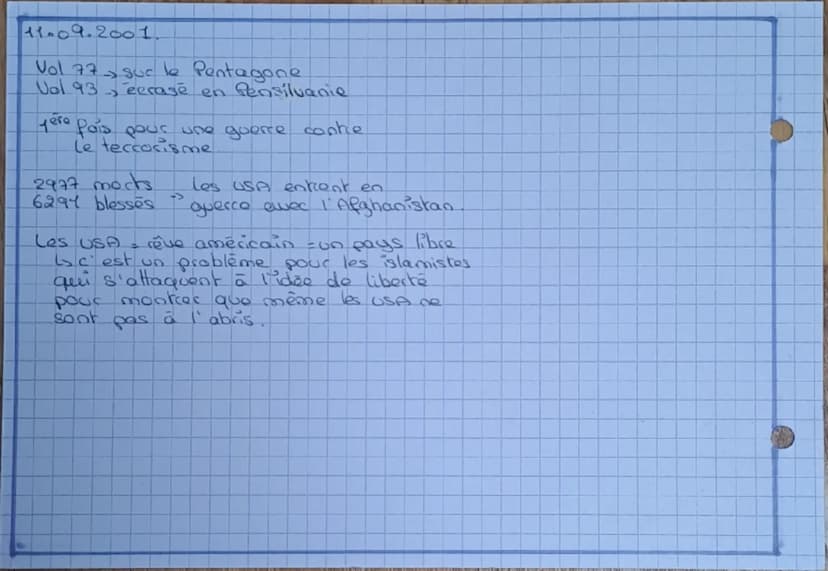 11.09.2001.
Vol 77 → sur le Pentagone
Vol 93 → écrasé en Pensilvanie
1ère fois pour une guerre contre
le terrorisme
2977 morts les USA entront en
6291 blessés → guerre avec l'Afghanistan.
Les USA = rêve américain = un pays libre
↳ c'est un problème pour les islamistes
qui s'attaquent à l'idée de liberté
pour montrer que même les USA ne
sont pas à l'abris.